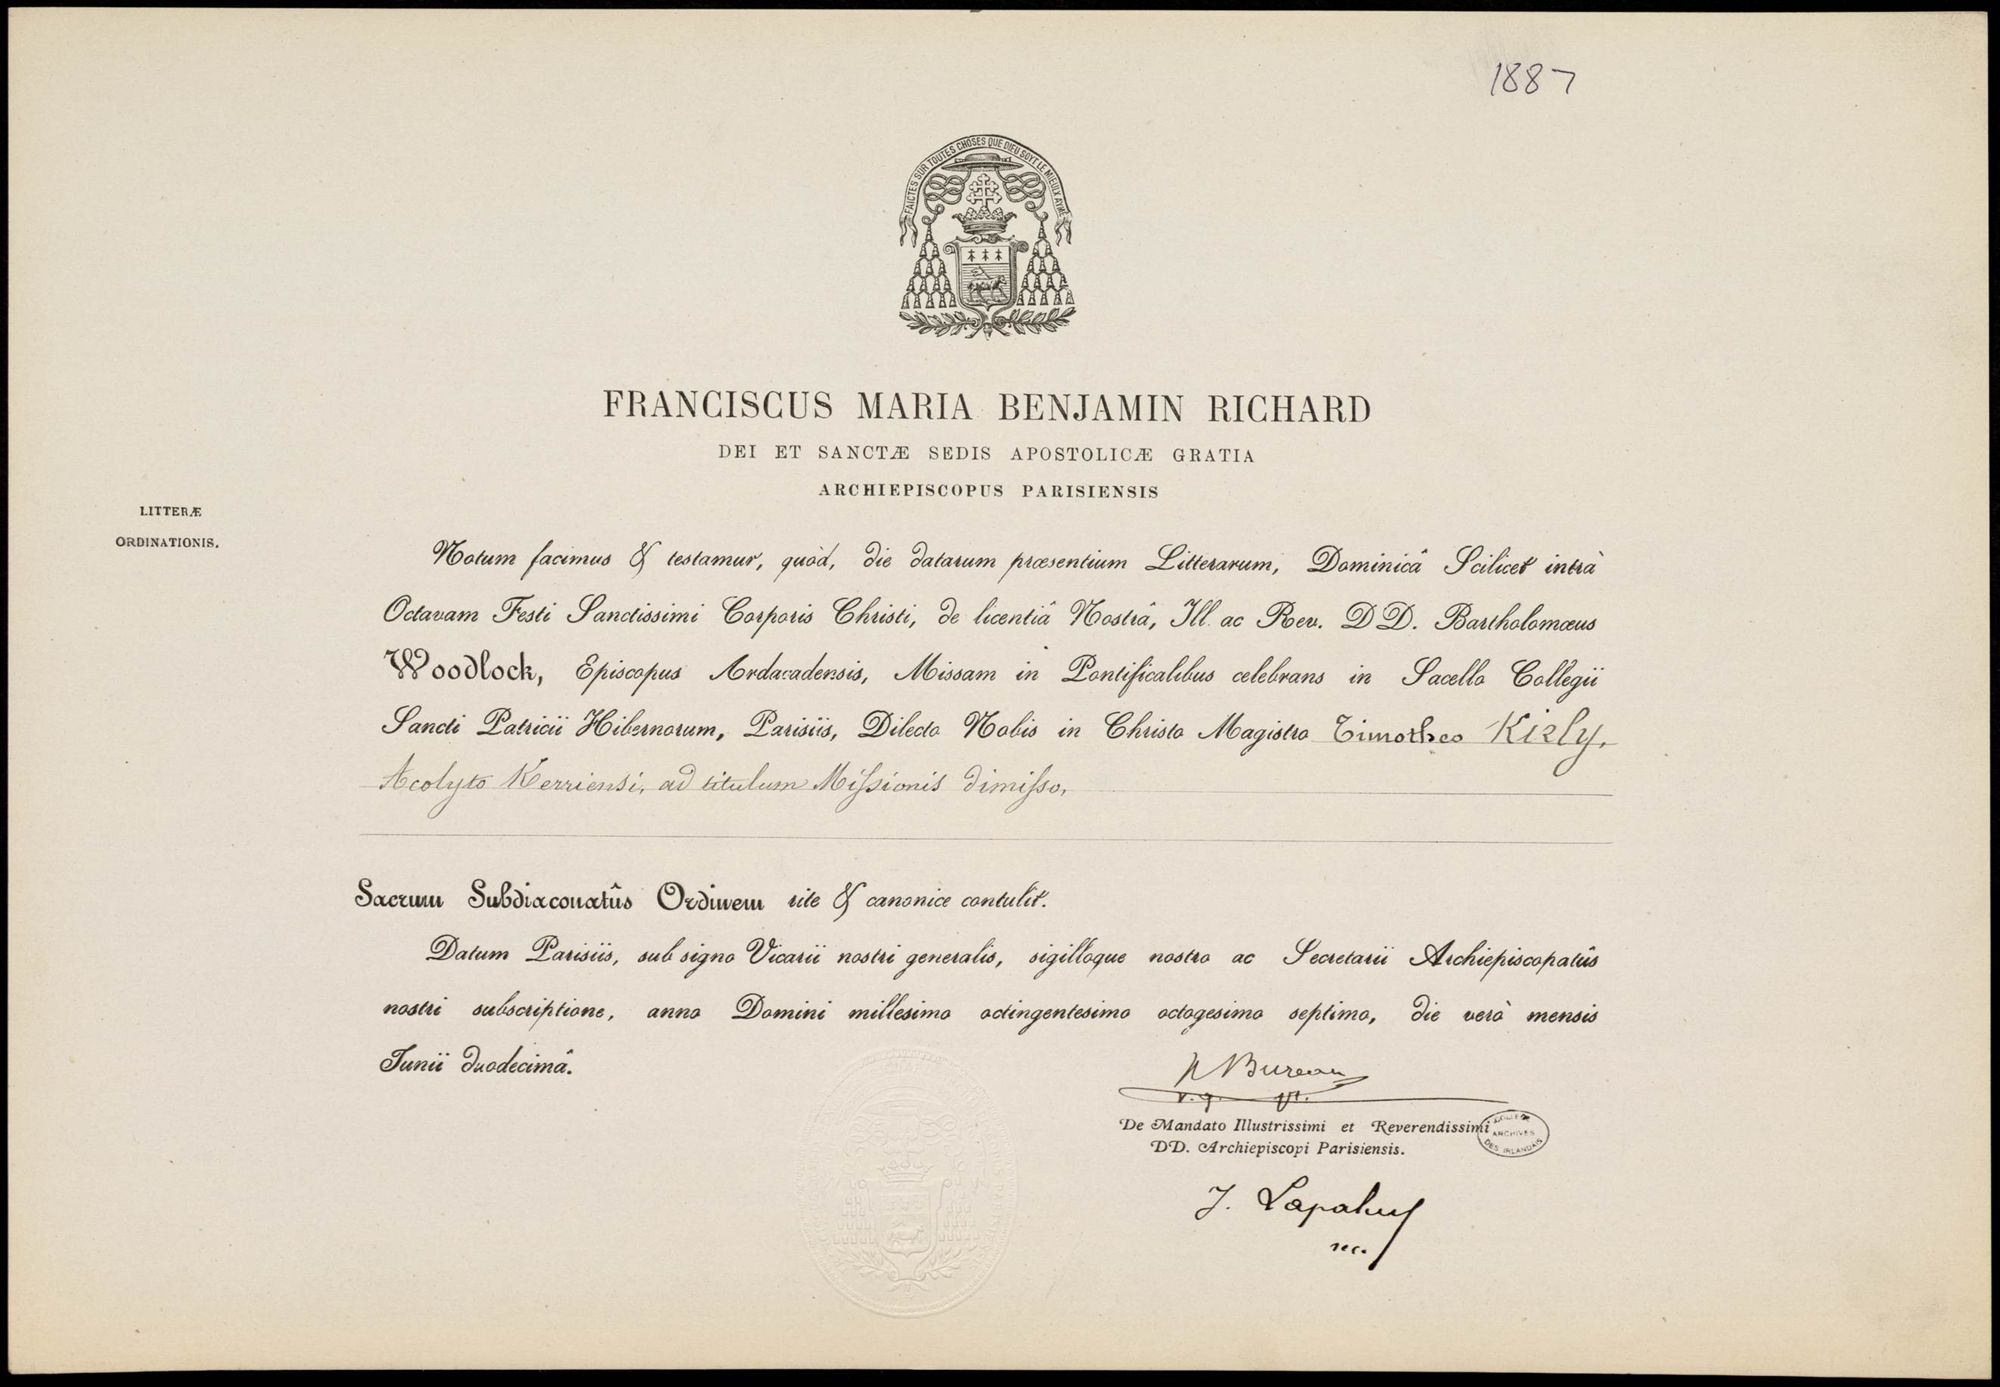 1887
FAICTES SUR TOUTES CHOSES QUE DIEU SOYT LE MIEULX AYMÉ
FRANCISCUS MARIA BENJAMIN RICHARD
DEI ET SANCTÆ SEDIS APOSTOLICÆ GRATIA
ARCHIEPISCOPUS PARISIENSIS
LITTERÆ
ORDINATIONIS.
Notum facimus & testamur, quòd, die datarum præsentium Litterarum, Dominicâ Scilicet intrà
Octavam Festi Sanctissimi Corporis Christi, de licentiâ Nostrâ, Ill. ac Rev. DD. Bartholomæus
Woodlock, Episcopus Ardacadensis, Missam in Pontificalibus celebrans in Sacello Collegii
Sancti Patricii Hibernorum, Parisiis, Dilecto Nobis in Christo Magistro Timotheo Kiely,
Acolyto Kerriensi, ad titulum Missionis dimisso,
Sacrum Subdiaconatûs Ordinem rite & canonice contulit.
Datum Parisiis, sub signo Vicarii nostri generalis, sigilloque nostro ac Secretarii Archiepiscopatûs
nostri subscriptione, anno Domini millesimo octingentesimo octogesimo septimo, die verò mensis
Junii duodecimâ.
Bureau
v. g.
De Mandato Illustrissimi et Reverendissimi
DD. Archiepiscopi Parisiensis.
COLLEGE
ARCHIVES
DES IRLANDAIS
J.
sec.